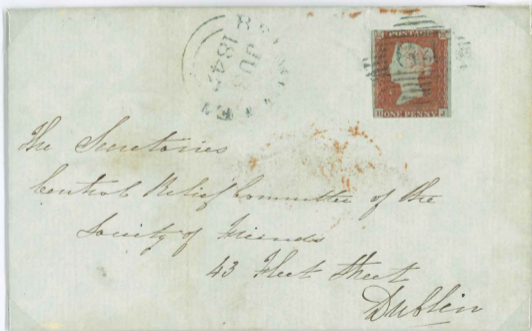 JU
184
POSTAGE
ONE PENNY
The Secretaries
Central Relief Committee of the
Society of Friends
43 Fleet Street
Dublin